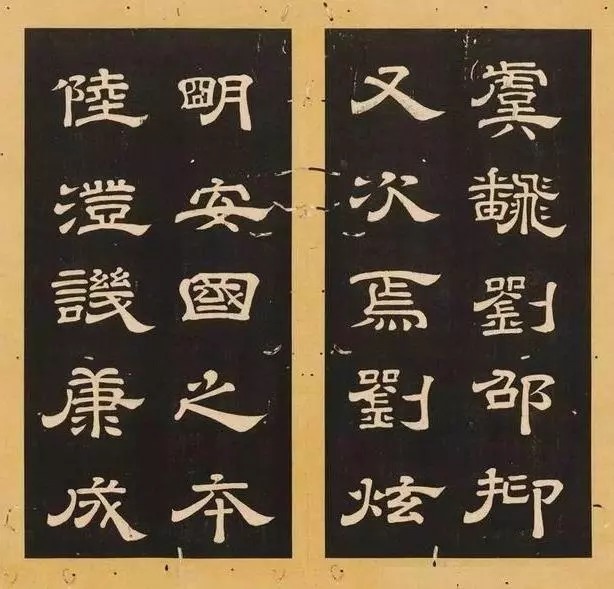 虞飜劉邵抑
又次焉劉炫
朙安國之本
陸澄譏康成